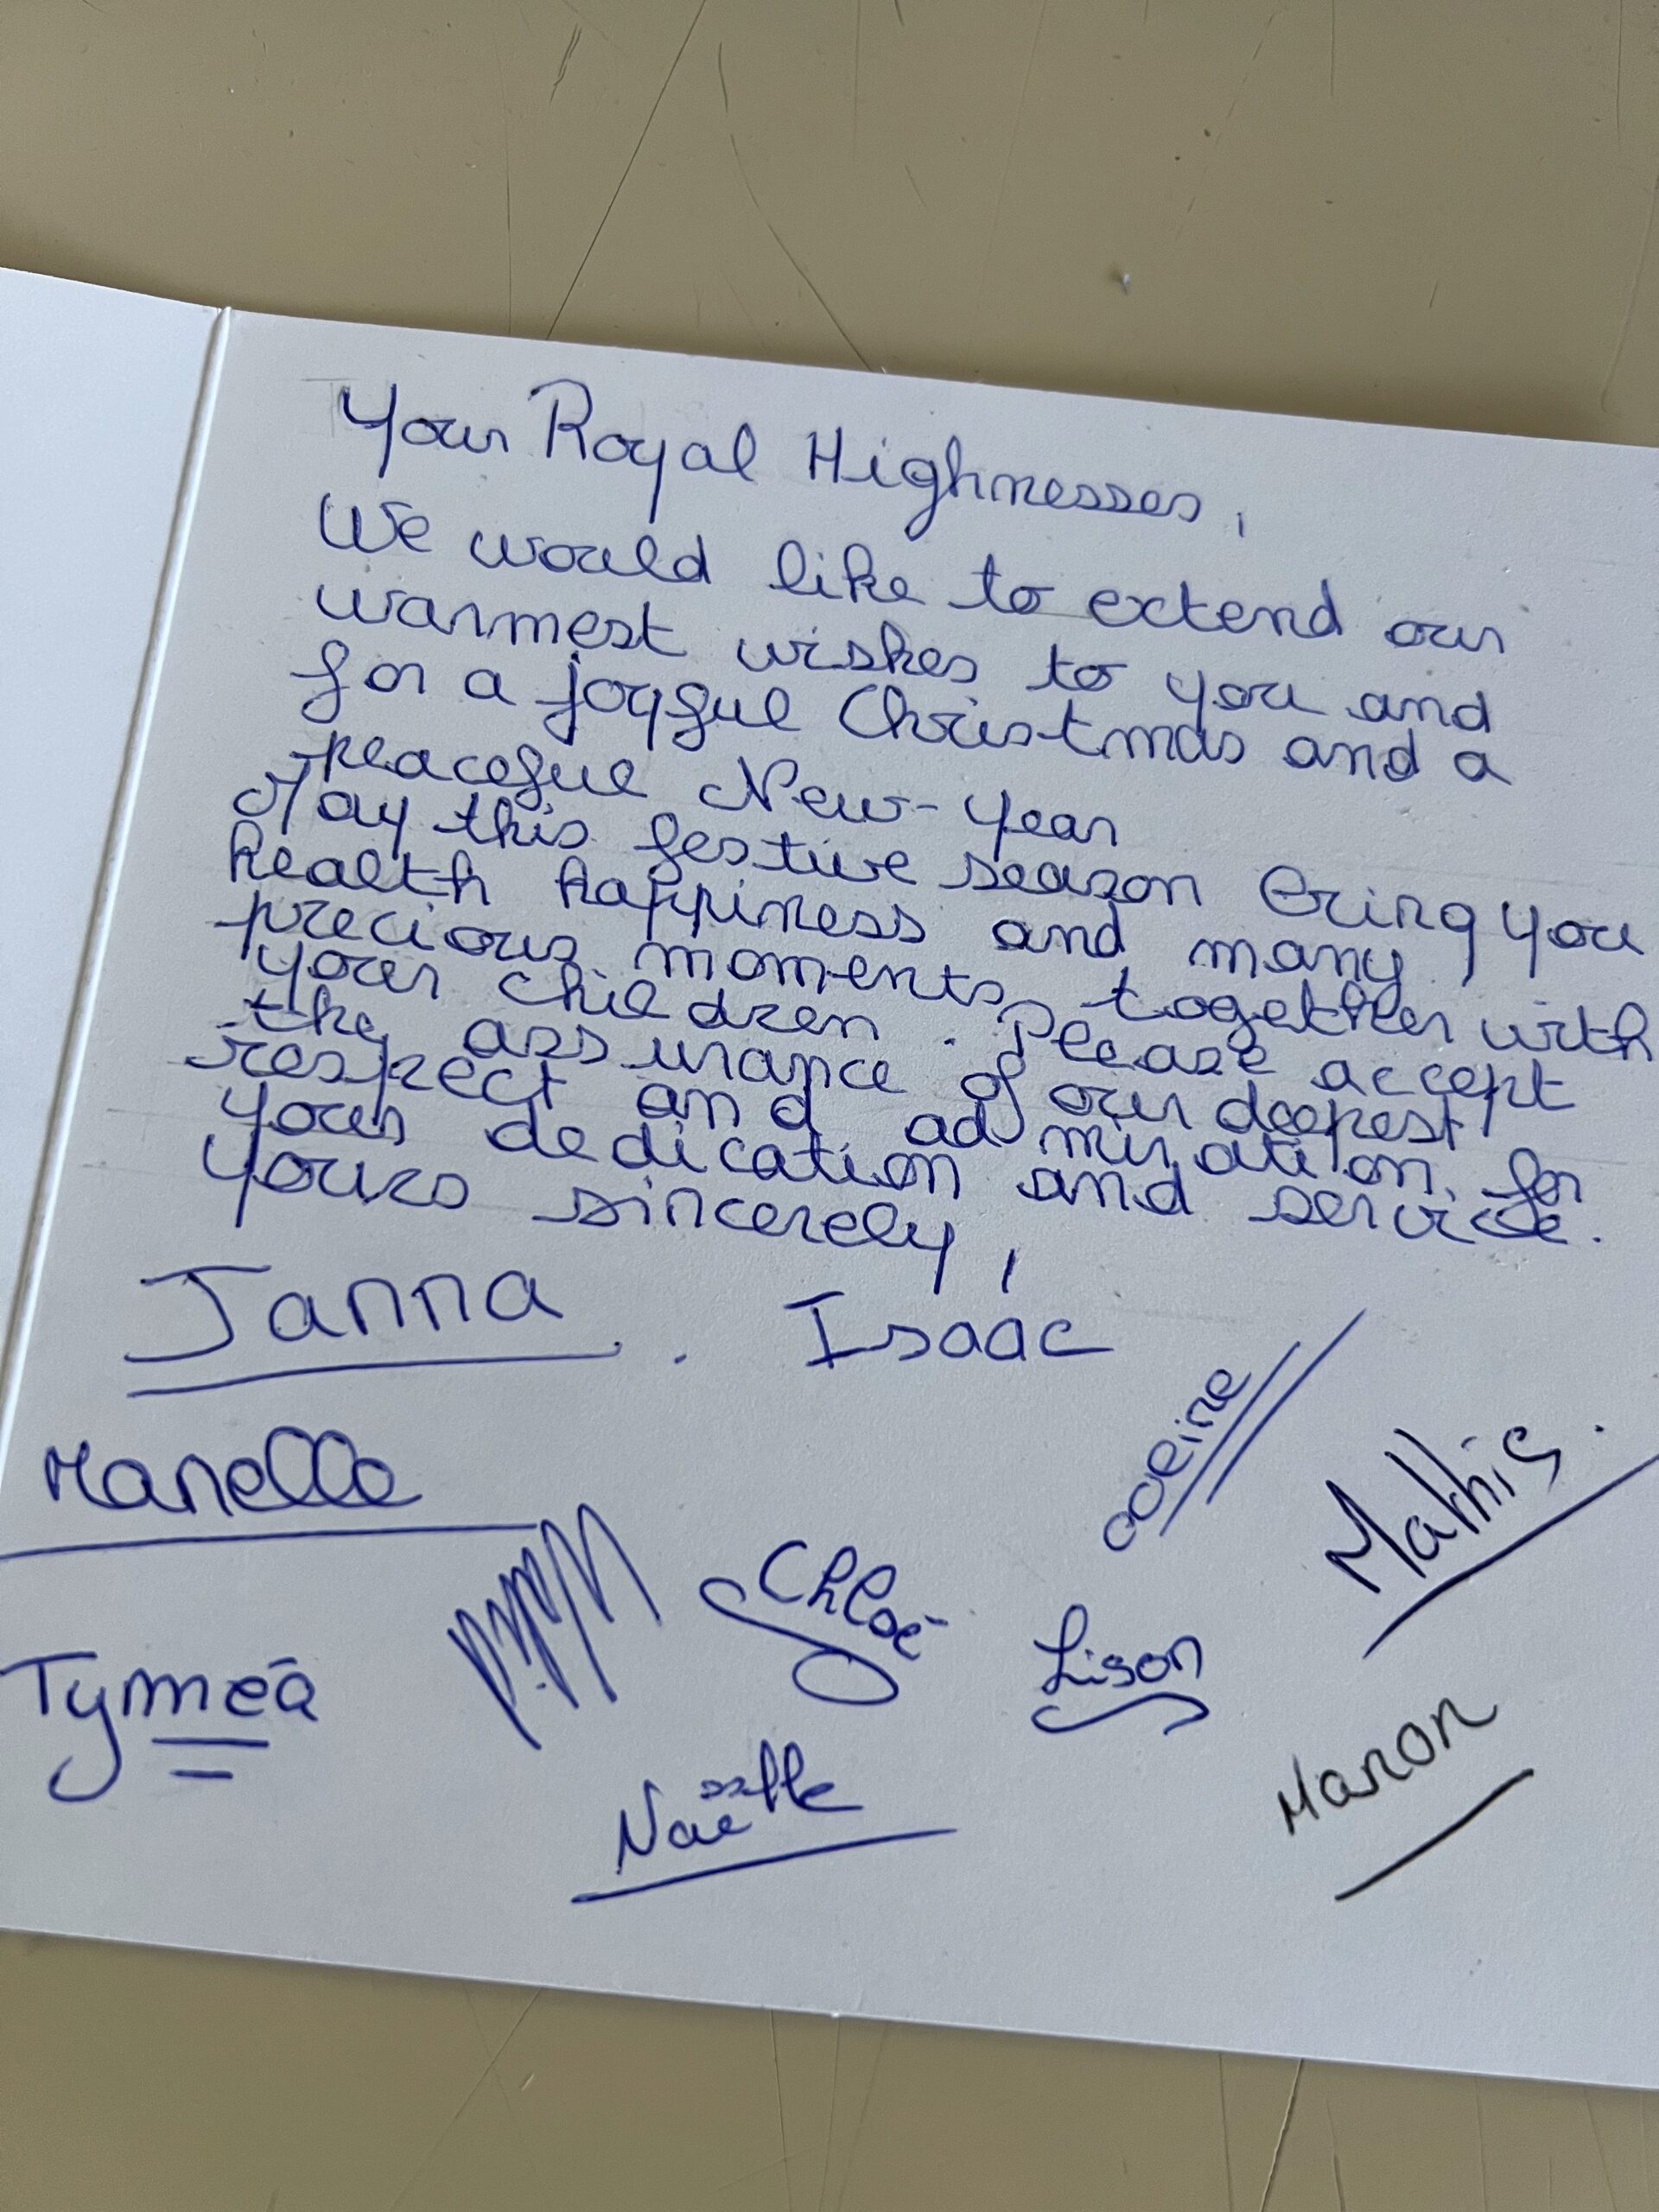 Your Royal Highnesses,
We would like to extend our
warmest wishes to you and
for a joyful Christmas and a
peaceful New-Year
May this festive season bring you
health happiness and many
precious moments together with
your children. Please accept
the assurance of our deepest
respect and admiration for
your dedication and service.
Yours sincerely,
Janna. Isaac
Manelle
Mathis.
Chloé
Lison
Tymea
Naëlle
Manon